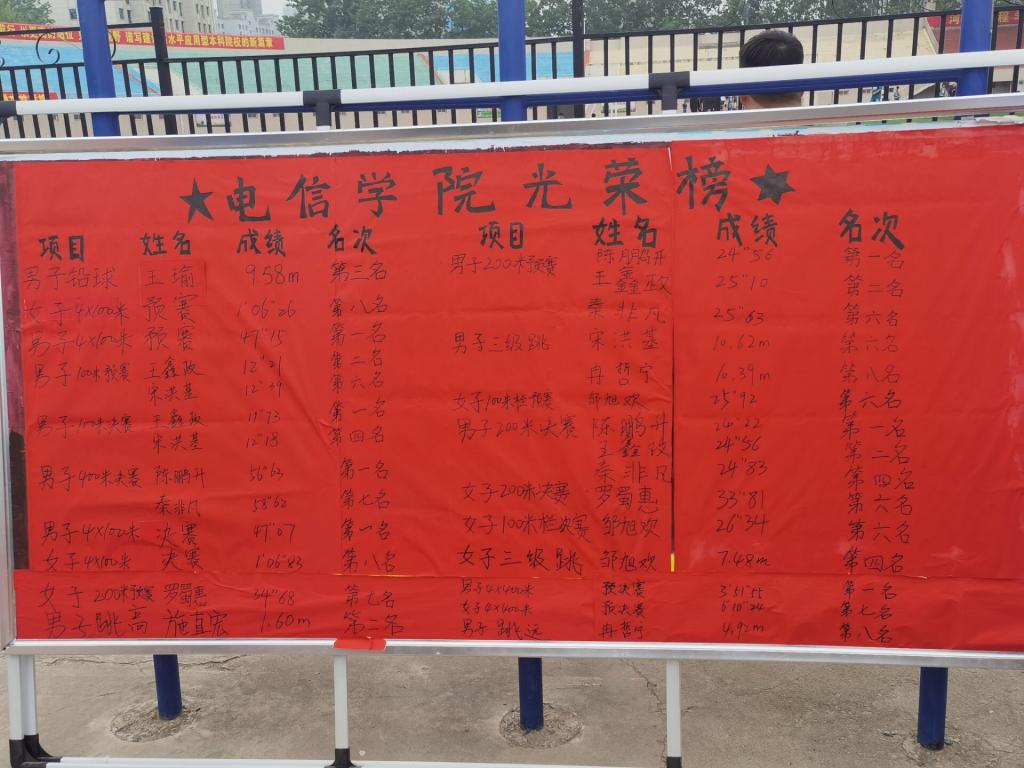 水平应用型本科院校的新篇章
★电信学院光荣榜★
项目 姓名 成绩 名次
男子铅球 王瑜 9.58m 第三名
女子4X100米 预赛 1'06"26 第八名
男子4X100米 预赛 47"15 第一名
男子100米预赛 王鑫政 12"21 第二名
宋洪基 12"39 第六名
男子100米决赛 王鑫政 11"73 第一名
宋洪基 12"18 第四名
男子400米决赛 陈鹏升 56"63 第一名
秦非凡 58"62 第七名
男子4X100米 决赛 47"07 第一名
女子4X100米 决赛 1'06"83 第八名
女子200米预赛 罗蜀惠 34"68 第七名
男子跳高 施直宏 1.60m 第二名
项目 姓名 成绩 名次
男子200米预赛 陈鹏升 24"56 第一名
王鑫政 25"10 第二名
秦非凡 25"63 第六名
男子三级跳 宋洪基 10.62m 第六名
冉哲宁 10.39m 第八名
女子100米栏预赛 邹旭欢 25"92 第六名
男子200米决赛 陈鹏升 24"22 第一名
王鑫政 24"56 第二名
秦非凡 24"83 第四名
女子200米决赛 罗蜀惠 33"81 第六名
女子100米栏决赛 邹旭欢 26"34 第六名
女子三级跳 邹旭欢 7.48m 第四名
男子4X400米 预决赛 3'51"55 第一名
女子4X400米 预决赛 6'10"24 第七名
男子跳远 冉哲宁 4.92m 第八名